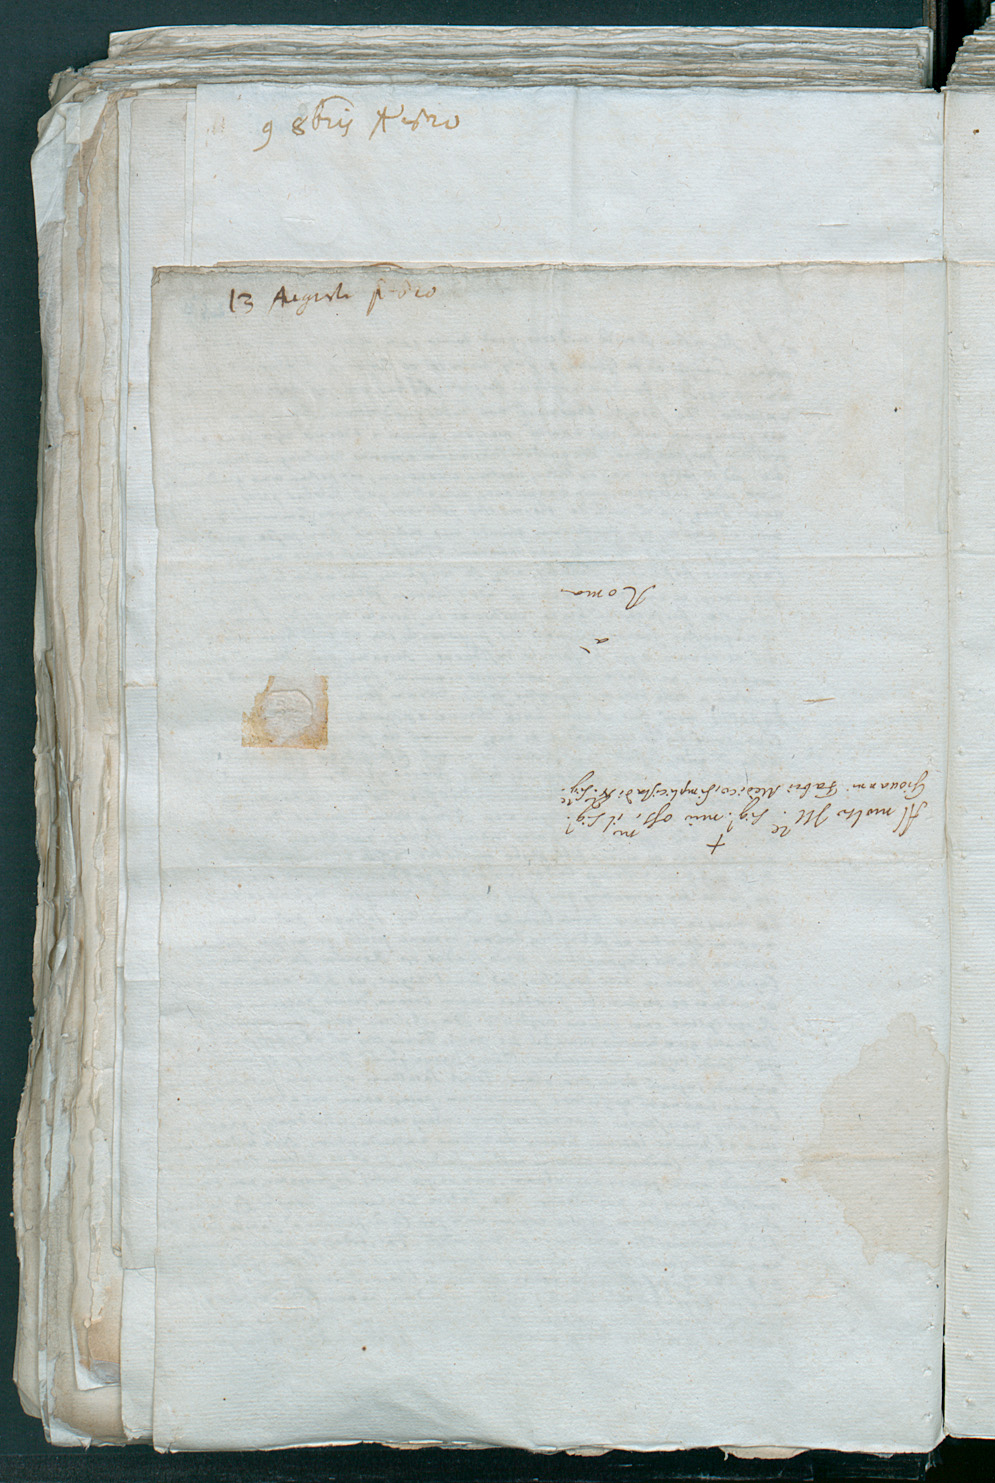 9 8bris
13 Augusti
+
Al molto Ill.re Sig.r mio oss.mo il Sig.r
Giovanni Fabri Medico, e Simplicista di N. Sig.re
à
Roma